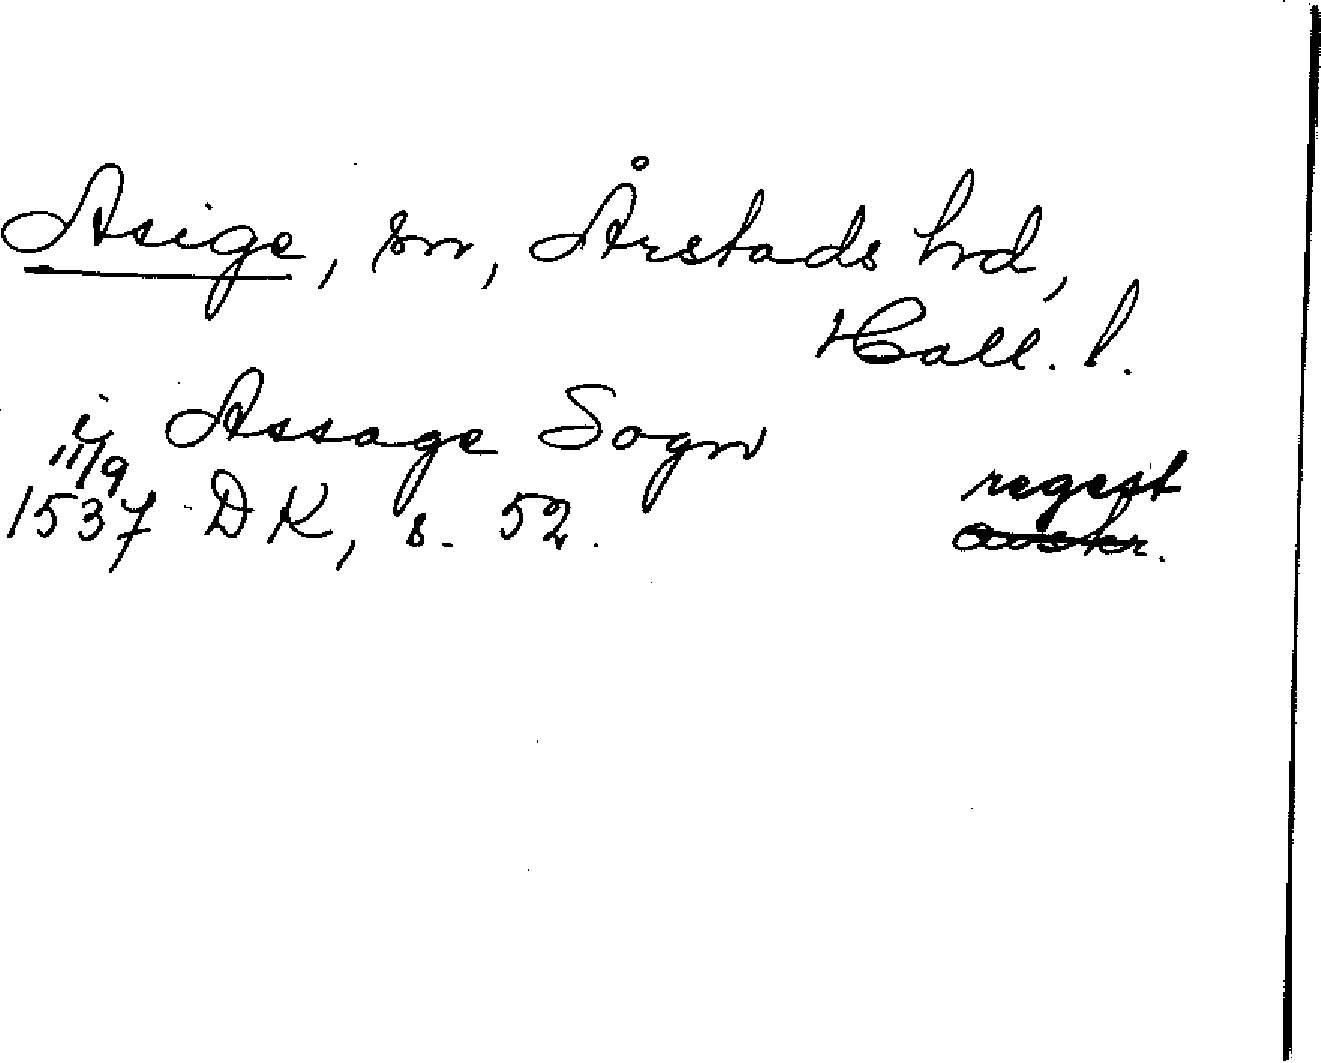 Asige, sn, Årstads hrd,
Hall. l.
i Assage Sogn
11/9
1537 DK, s. 52.
regest
avskr.